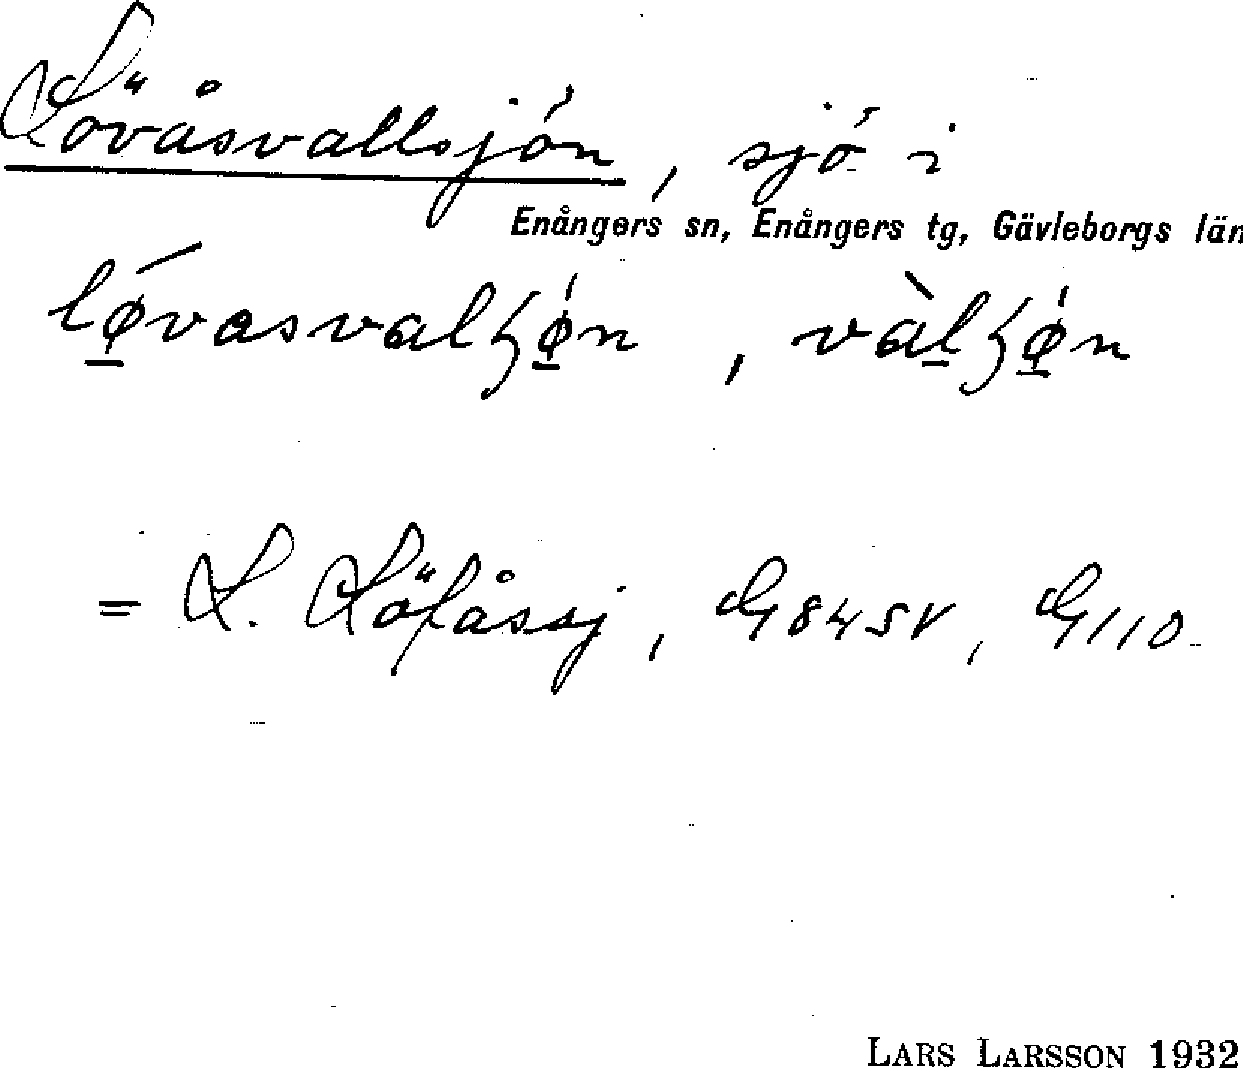 Lövåsvallsjön, sjö i
Enångers sn, Enångers tg, Gävleborgs län
lǿ̱vasvalʒǿ̱n, và̱lʒǿ̱n
= L. Löfåssj, G 84 SV, G 110
LARS LARSSON 1932